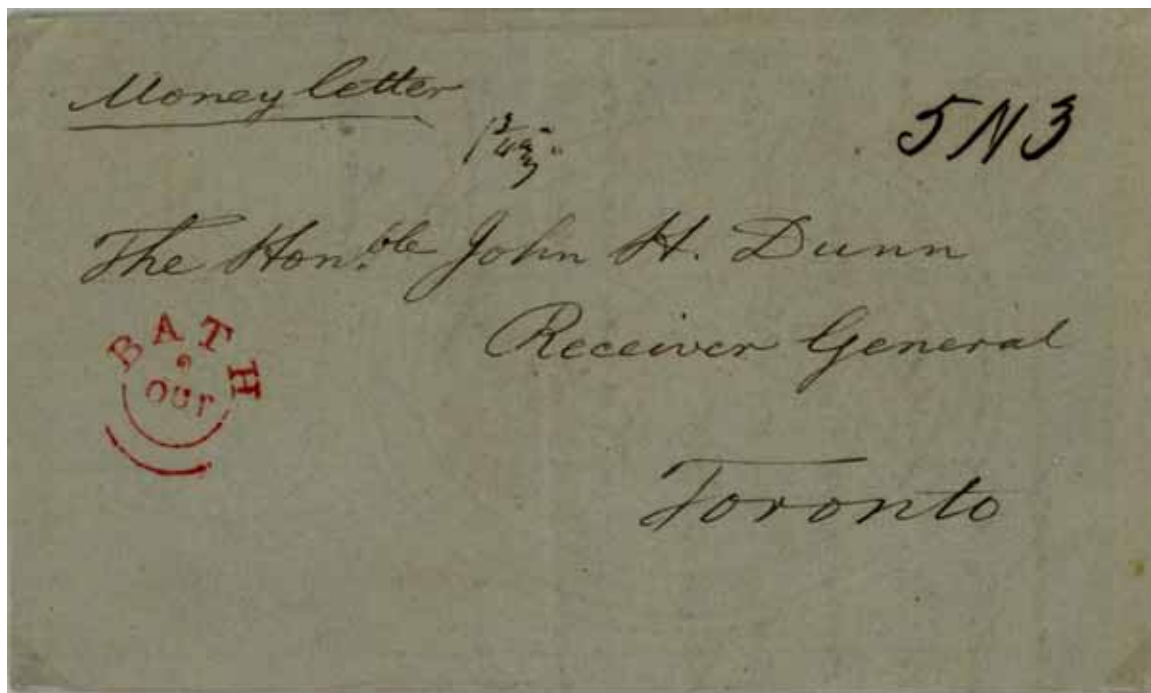 Money letter
5N3
The Hon.ble John H. Dunn
Receiver General
BATH
Toronto